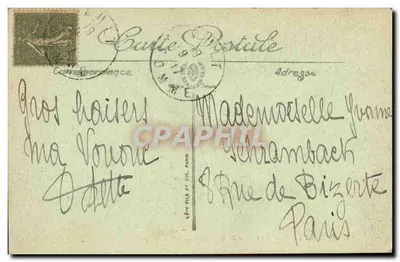 Carte Postale
Correspondance
Adresse
Gros baisers
ma Vonone
Odette
Mademoiselle Yvonne
Schrambach
8 Rue de Bizerte
Paris
LÉVY FILS ET CIE, PARIS